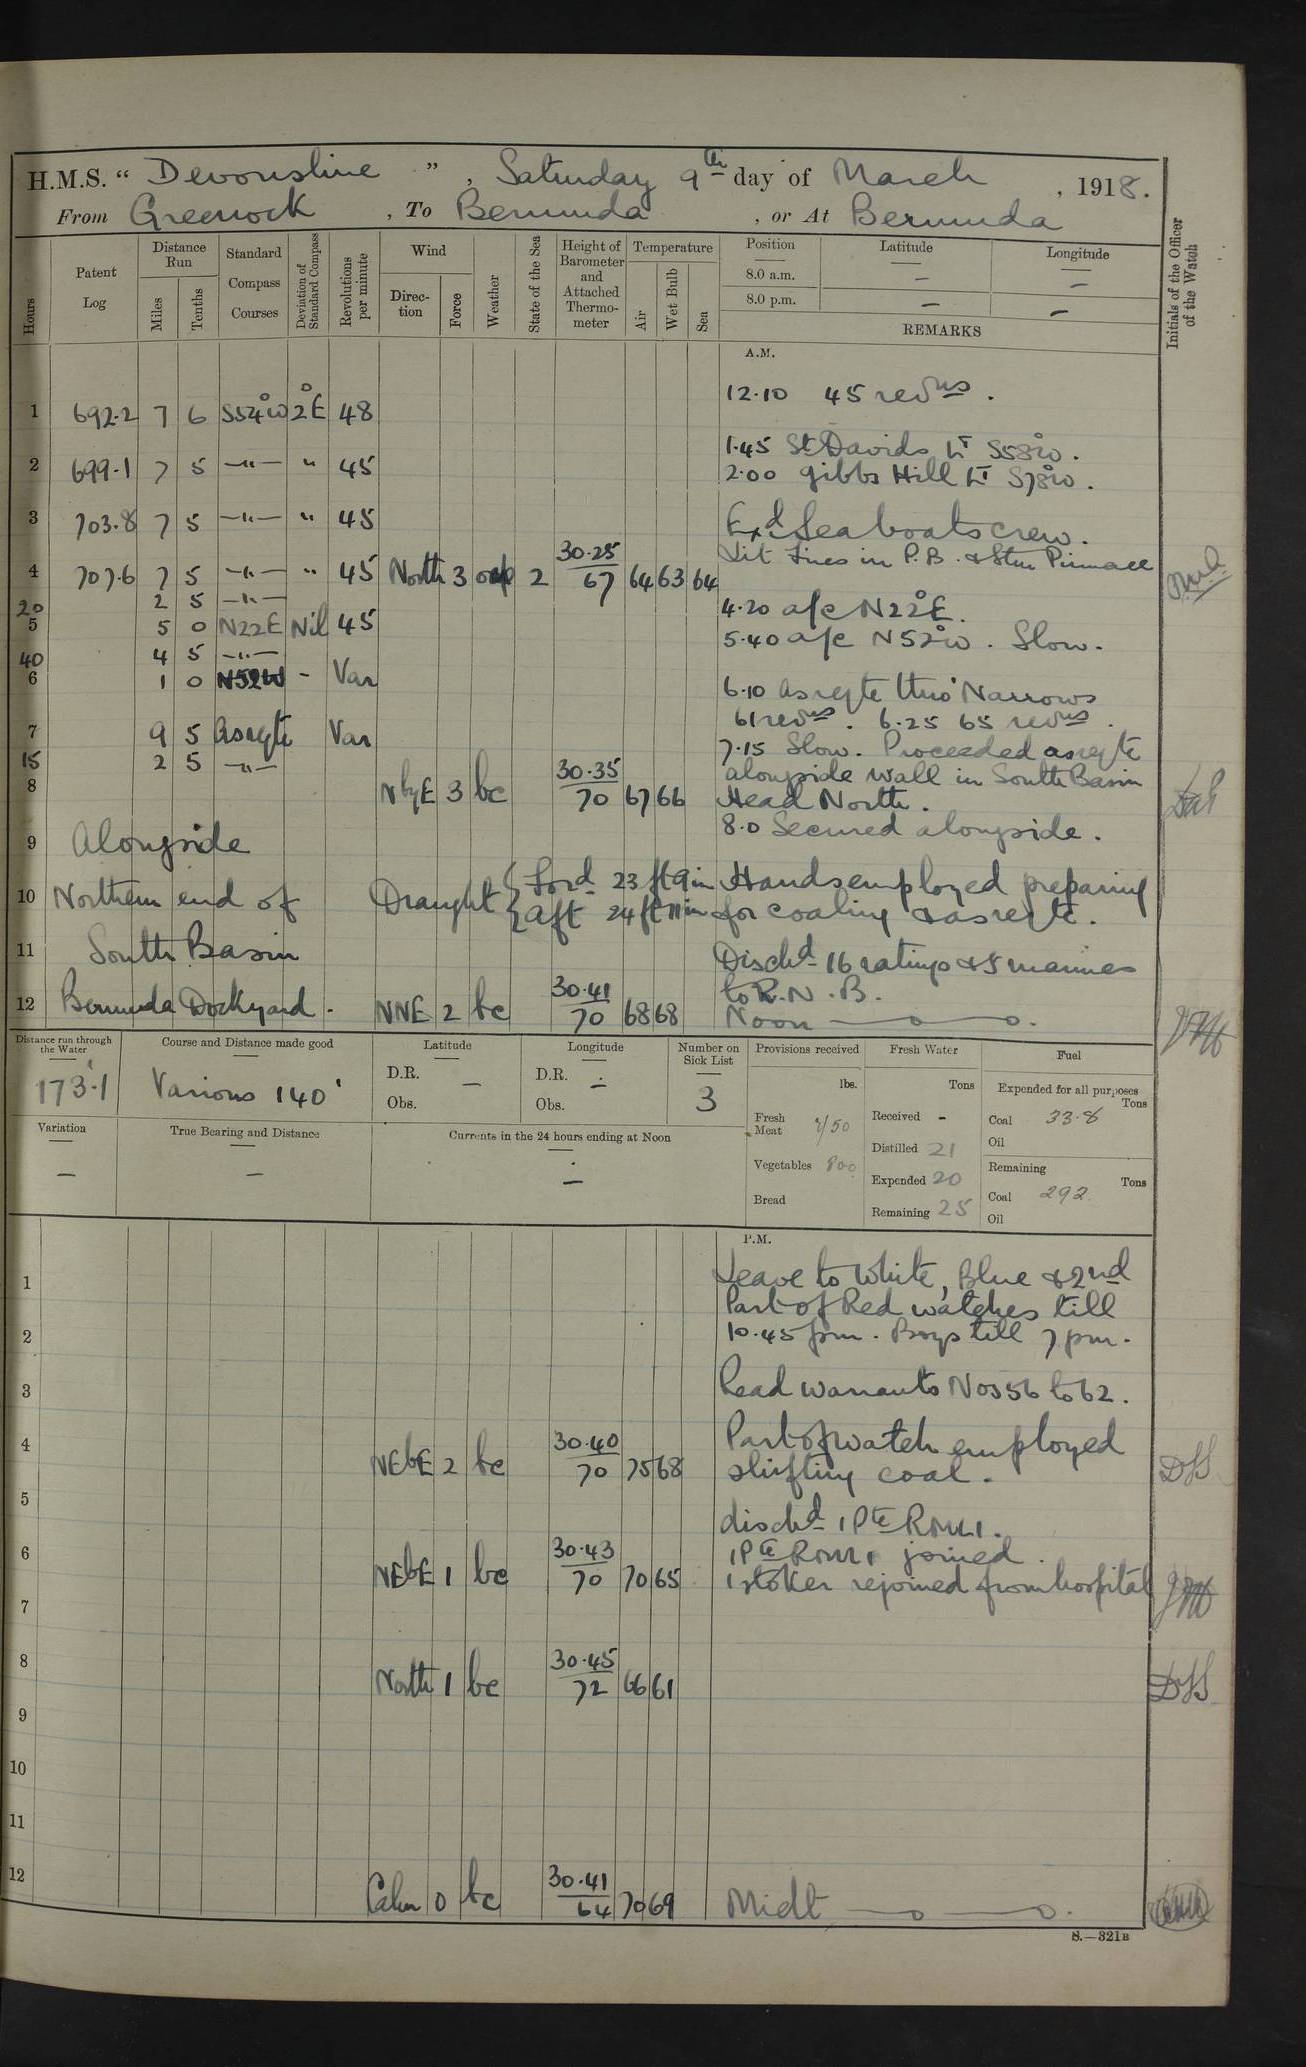 H.M.S. “ Devonshire ” , Saturday 9th day of March , 1918.
From Greenock , To Bermuda , or At Bermuda
Hours Patent Log Distance Run Miles Tenths Standard Compass Courses Deviation of Standard Compass Revolutions per minute Wind Direction Force Weather State of the Sea Height of Barometer and Attached Thermometer Temperature Air Wet Bulb Sea Position Latitude Longitude Initials of the Officer of the Watch
8.0 a.m. — —
8.0 p.m. — —
REMARKS
A.M.
12.10 45 revns.
1 692.2 7 6 S54°W 2°E 48
1.45 St Davids Lt S58°W.
2 699.1 7 5 —"— " 45 2.00 Gibbs Hill Lt S78°W.
3 703.8 7 5 —"— " 45 Exd Sea boats crew.
Lit fires in P.B. & Stm Pinnace
4 707.6 7 5 —"— " 45 North 3 2 30.25 67 64 63 64
20 2 5 —"— 4.20 a/c N22°E.
5 5 0 N22E Nil 45 5.40 a/c N52°W. Slow.
40 4 5 —"—
6 1 0 N52W - Var 6.10 As reqte thro' Narrows
61 revns. 6.25 65 revns.
7 9 5 As reqte Var 7.15 Slow. Proceeded as reqte
15 2 5 —"— alongside wall in South Basin
8 NbyE 3 bc 30.35 70 67 66 Head North.
8.0 Secured alongside.
9 Alongside
10 Northern end of Draught { Ford 23 ft 9 in Aft 24 ft 11 in Hands employed preparing
for coaling & as reqte.
11 South Basin Dischd 16 ratings & 5 marines
to R.N.B.
12 Bermuda Dockyard. NNE 2 bc 30.41 70 68 68 Noon
Distance run through the Water Course and Distance made good Latitude Longitude Number on Sick List Provisions received Fresh Water Fuel
173'.1 Various 140' D.R. — D.R. — 3 lbs. Tons Expended for all purposes Tons
Obs. Obs. Fresh Meat Received - Coal 33.8
Oil
Variation True Bearing and Distance Currents in the 24 hours ending at Noon
Distilled 21
— — — Vegetables 800 Expended 20 Remaining Tons
Coal 292
Bread Remaining 25 Oil
P.M.
1 Leave to White, Blue & 2nd
Part of Red watches till
2 10.45 pm. Boys till 7 pm.
3 Read warrants Nos 56 to 62.
4 NEbE 2 bc 30.40 70 75 68 Part of watch employed
shifting coal.
5 dischd 1 Pte RMLI.
6 NEbE 1 bc 30.43 70 70 65 1 Pte RMLI joined.
1 stoker rejoined from hospital
7
8 North 1 bc 30.45 72 66 61
9
10
11
12 Calm 0 bc 30.41 64 70 69 Midt
S.—321B